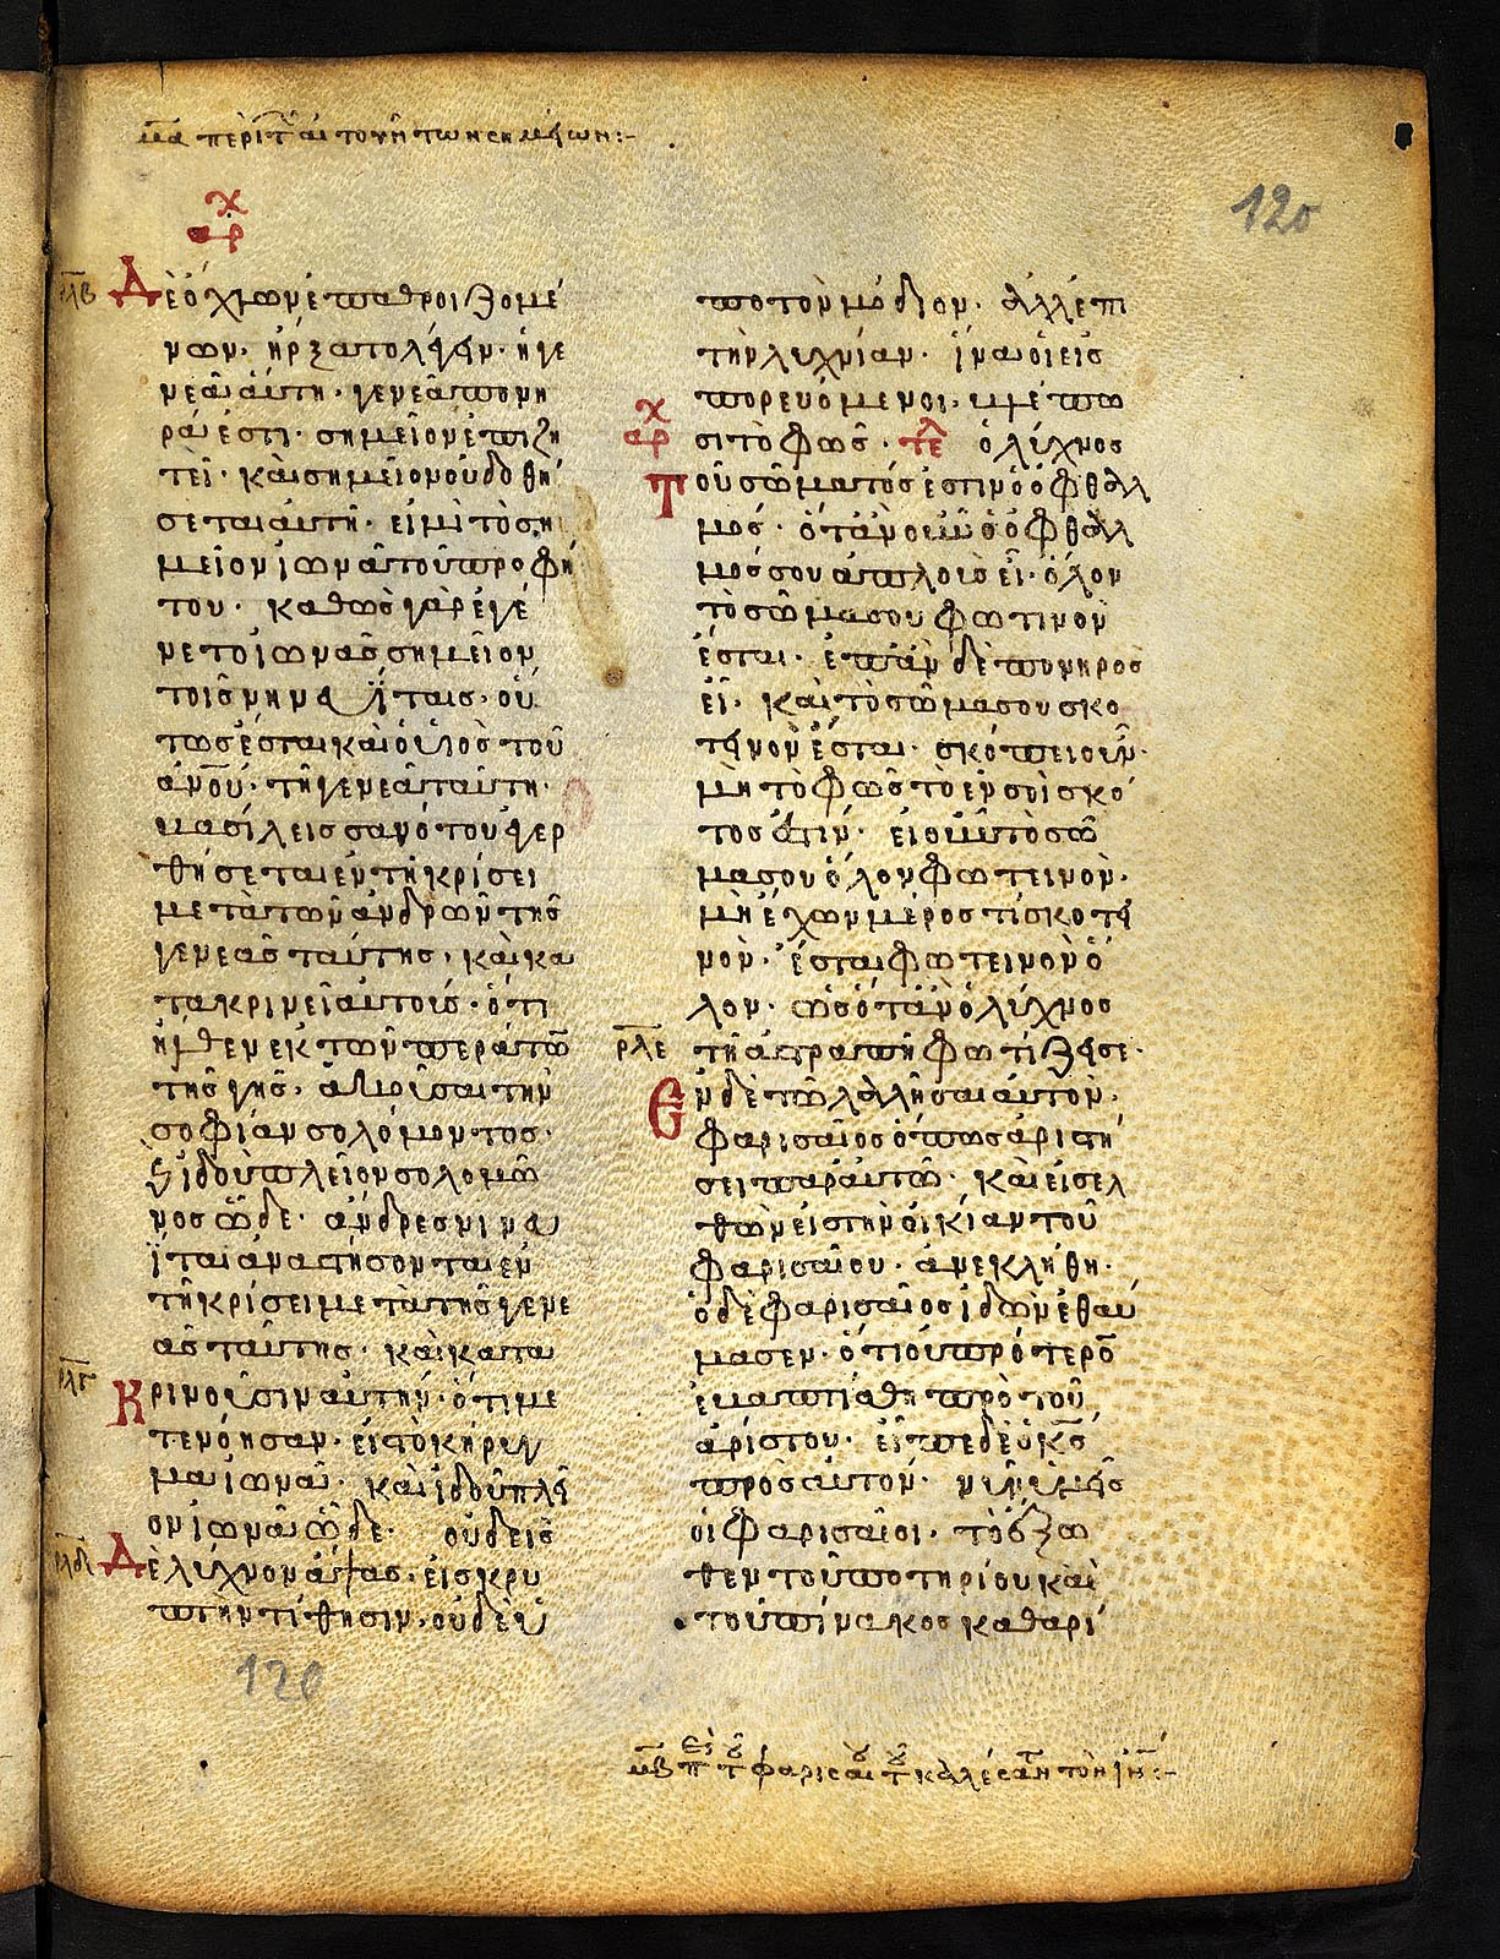 μα περὶ τ αιτούντων σημείων:-
120
χ
αρ
ρλβ
Δὲ ὄχλων ἐπαθροιζομέ
νων· ἤρξατο λέγειν· ἡ γε
νεὰ αὕτη· γενεὰ πονη
ρά ἐστι· σημεῖον ἐπιζη
τεῖ· καὶ σημεῖον οὐ δοθή
σεται αὐτῆ· εἰ μὶ τὸ ση
μεῖον ἰωνᾶ τοῦ προφή
του· καθὼς γὰρ ἐγέ
νετο ἰωνᾶς σημεῖον
τοῖς νηνευΐταις· οὕ
τως ἔσται καὶ ὁ υἱὸς τοῦ
ἀνου· τῆ γενεᾶ ταύτη·
βασίλεισσα νότου ἐγερ
θήσεται ἐν τῆ κρίσει
μετὰ τῶν ἀνδρῶν τῆς
γενεᾶς ταύτης· καὶ κα
τακρινεῖ αὐτούς· ὅτι
ἦλθεν ἐκ τῶν περάτω
τῆς γῆς· ἀκοῦσαι τὴν
σοφίαν σολόμοντος·
ϗ ἰδοὺ πλεῖον σολομῶ
νος ὧδε· ἄνδρες νινευ
ῖται ἀναστήσονται ἐν
τῆ κρίσει μετὰ τῆς γενε
ᾶς ταύτης· καὶ κατα
ρλγ
Κρινοῦσιν αὐτήν· ὅτι με
τενόησαν· εἰς τὸ κήρυγ
μα ἰωνᾶ· καὶ ἰδοῦ πλεῖ
ον ἰωνᾶ ὧδε· οὐδεὶς
ρλδ
Δὲ λύχνον ἅψας· εἰς κρυ
πτὴν τίθησιν· οὐδὲ ὑ
πὸ τὸν μόδιον· ἀλλ' ἐπὶ
τὴν λυχνίαν· ἵνα οἱ εἰσ
πορευόμενοι· βλέπω
χ
αρ
σι τὸ φῶς· τελ ὁ λύχνος
Τοῦ σώματός ἐστιν ὁ ὀφθαλ
μός· ὅταν οὖν ὁ ὀφθαλ
μός σου ἁπλοῦς εἶ· ὅλον
τὸ σῶμα σου φωτινὸν
ἔσται· ἐπὰν δὲ πονηρὸς
εἶ· καὶ τὸ σῶμα σου σκο
τεινὸν ἔσται· σκόπει οὖν·
μὴ τὸ φῶς τὸ ἐν σοὶ σκό
τος ἐστιν· εἰ οὖν τὸ σῶ
μα σου ὅλον φωτεινὸν·
μὴ ἔχων μέρος τί σκοτει
νὸν· ἔσται φωτεινὸν ὅ
λον· ὡς ὅταν ὁ λύχνος
ρλε
τῆ ἀστραπῆ φωτίζει σε·
Ἐν δὲ τῶ λαλῆσαι αὐτὸν·
φαρισαῖος ὅπως ἀριστή
σει παρ' αὐτῶ· καὶ εἰσελ
θὼν εἰς τὴν οἰκίαν τοῦ
φαρισαίου· ἀνεκλήθη·
ὁ δὲ φαρισαῖος ἰδὼν ἐθαύ
μασεν· ὅτι οὐ πρότερο
ἐβαπτίσθη πρὸ τοῦ
ἀρίστου· εἶπε δὲ ὁ κς
πρὸς αὐτόν· νῦν ὑμεῖς
οἱ φαρισαῖοι· τὸ ἔξω
θεν τοῦ ποτηρίου καὶ
τοῦ πίνακος καθαρί
120
μβ π τ φαρισαι τ καλέσαντ τὸν ιν:-